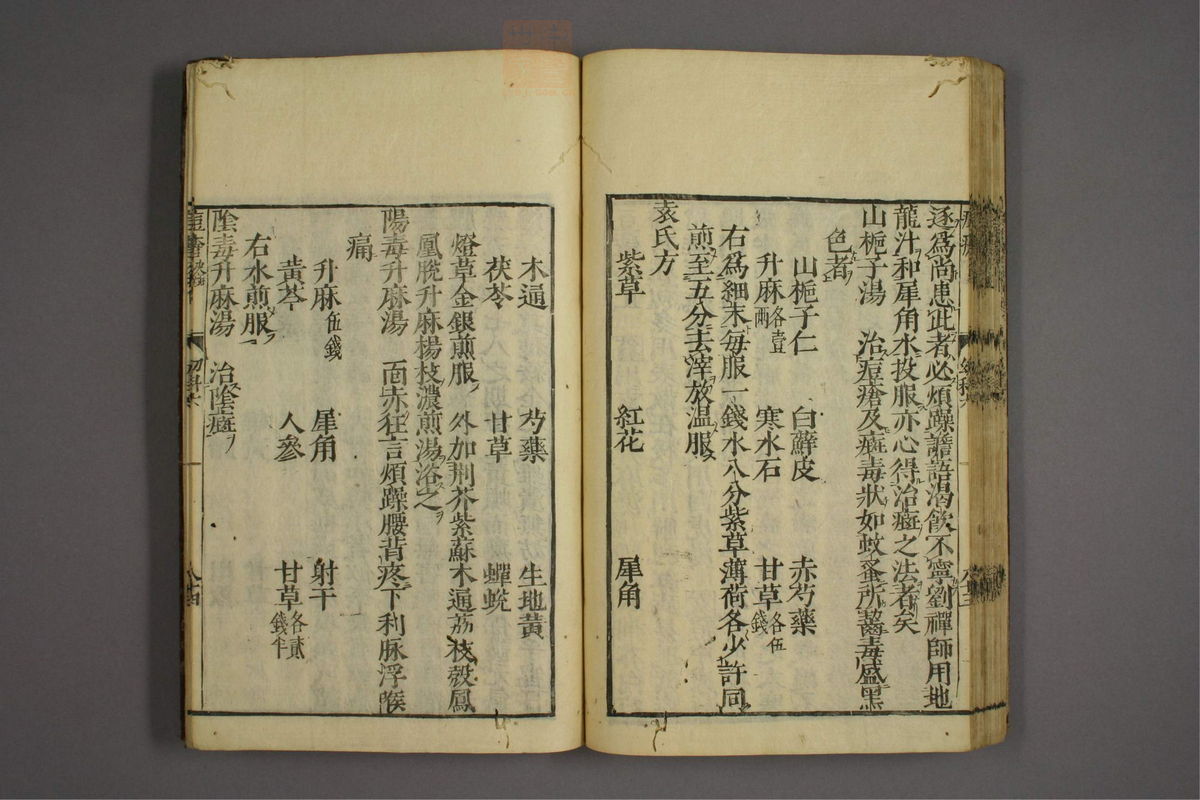 逐爲尚患此者必煩躁譫語渴飲不寧劉禪師用地
龍汁和犀角水投服亦心得治痲之法者矣
山梔子湯 治痘瘡及痲毒狀如蚊蚤所囓毒盛黑
色者
山梔子仁 白蘚皮 赤芍藥
升麻各壹兩 寒水石 甘草各伍錢
右爲細末每服一錢水八分紫草薄荷各少許同
煎至五分去滓放温服
袁氏方
紫草 紅花 犀角
木通 芍藥 生地黃
茯苓 甘草 蟬蛻
燈草金銀煎服 外加荆芥紫蘇木通荔枝殼鳳
凰脫升麻楊枝濃煎湯浴之
陽毒升麻湯 面赤狂言煩躁腰背疼下利脉浮喉
痛
升麻伍錢 犀角 射干
黃芩 人參 甘草各貳錢半
右水煎服
陰毒升麻湯 治陰痲